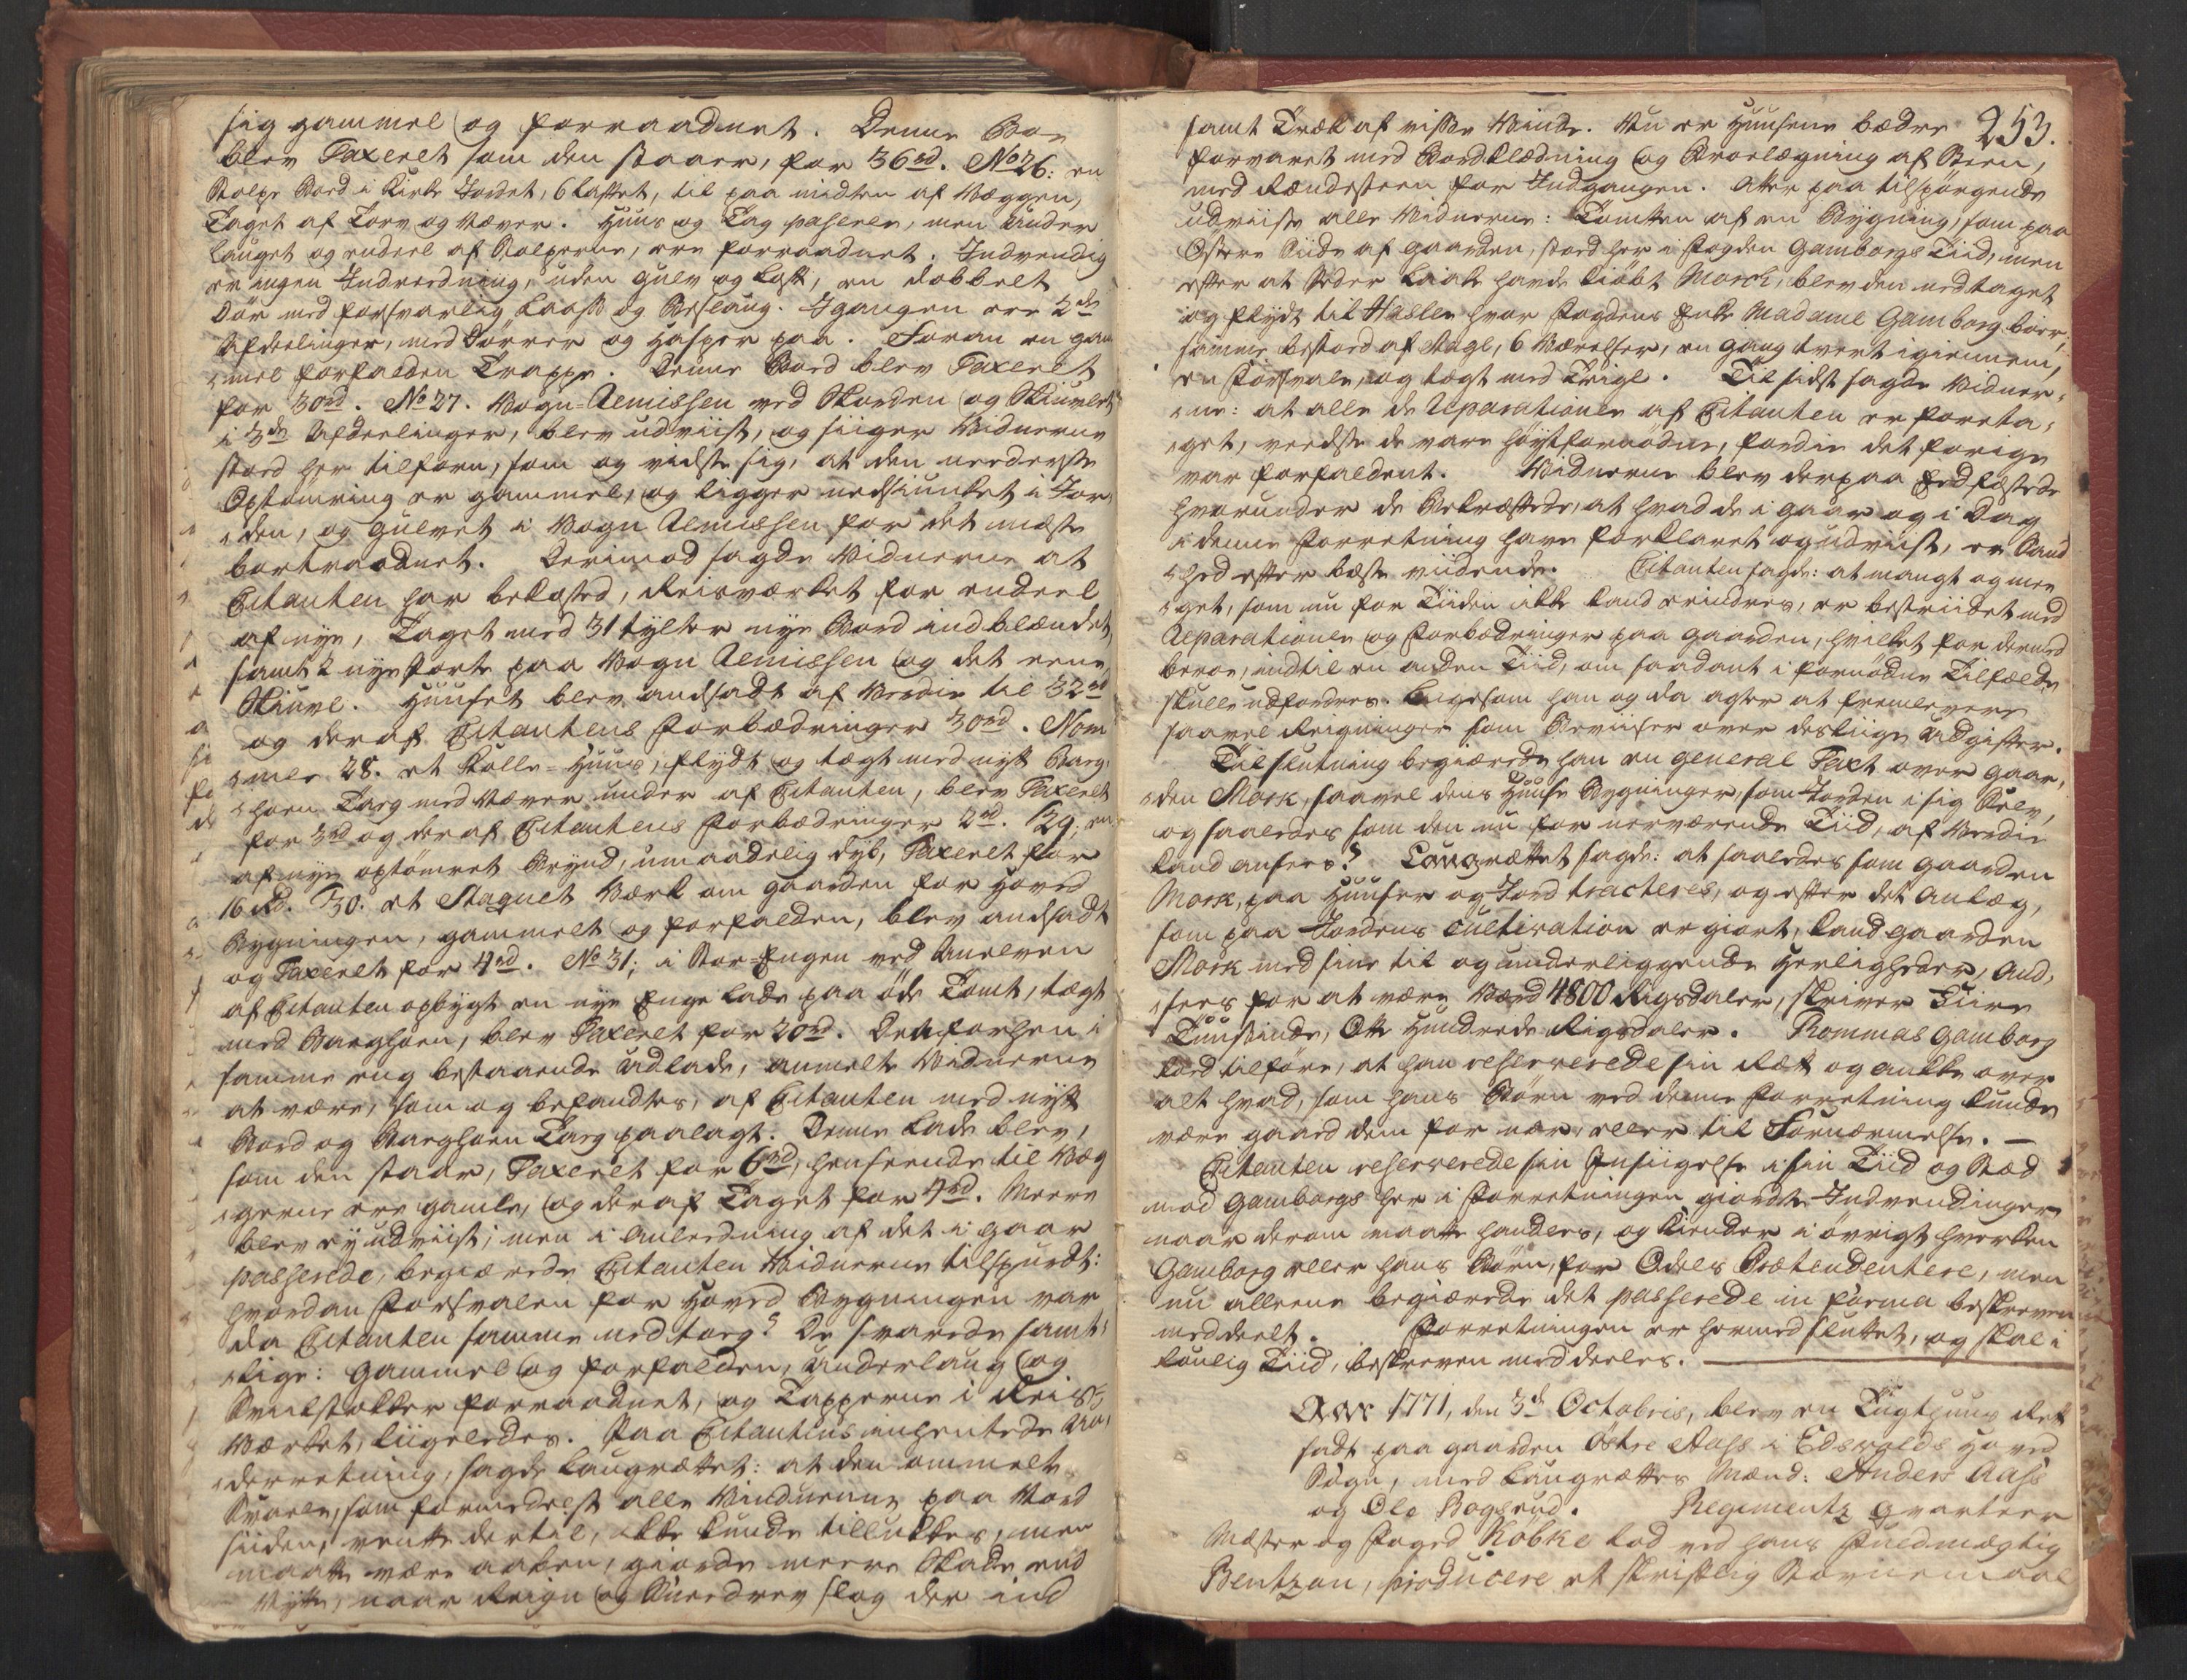 sig gammel og forraadnet. Denne Boe
blev Taxeret som den staaer, for 36 rd. No 26: en
Stolpe Boed i Kirke Jordet, 6 laftet, til paa midten af Væggen,
Taget af Torv og Næver. Huus og Tag passerer, men Under
lauget og endeel af Stolperne, ere forraadnet. Indvendig
er ingen Indreedning, uden gulv og Loft, en dobbelt
Dør med forsvarlig Laass og Beslaug. I gangen ere 2de
Afdeelinger, med Dørrer og Hasper paa. Foran en gam
mel forfalden Trappe. Denne Boed blev Taxeret
for 30 rd. No 27. Vogn-Remissen ved Porten og Skiuvlet
i 3de Afdeelinger, blev udviist, og siiger Vidnerne
stoed her tilforn, som og viidste sig, at den neederste
Optømring er gammel, og ligger nedsiunket i Jor
den, og gulvet i Vogn Remissen for det meeste
bortraadnet. Derimod sagde Vidnerne at
Citanten har bekosted, Reisværket for endeel
af nye, Taget med 31 tylter nye Bord indblændet,
samt 2 nye Porte paa Vogn Remissen og det eene
Skiuvl. Huuset blev andsadt af Verdie til 32 rd
og deraf Citantens Forbædringer 30 rd. Nom
mer 28. et Kølle-Huus, flydt og tægt med nytt Barg
hoen Targ med Næver under af Citanten, blev Taxeret
for 3 rd og deraf Citantens Forbædringer 2 rd. 29; en
af nye optømret Brynd, umaadelig dyb, Taxeret for
16 rd. 30: et Staquet Værk om gaarden for Hoved
Bygningen, gammelt og forfalden, blev andsadt
og Taxeret for 4 rd. No 31; i Stor-Engen ved Auelven
af Citanten opbygt en nye Enge Lade paa øde Tomt, tægt
med Barghoen, blev Taxeret for 20 rd. Den forhen i
samme eng bestaaende Udlade, anmelte Vidnerne
at være, som og befandtes, af Citanten med nytt
Bord og Barghoen Targ paalagt. Denne Lade blev,
som den staar, Taxeret for 6 rd, henseende til Væg
gerne ere gamle, og deraf Taget for 4 rd. Meere
blev ey udviist; men i Anleedning af det i gaar
passerede, begiærede Citanten Vidnerne tilspurdt:
hvordan Forsvalen for Hoved Bygningen var
da Citanten samme nedtoeg? De svarede samt
lige: gammel og forfalden, Underlaug og
Sviilstokker forraadnet, og Tapperne i Reis
Værket, liigeledes. Paa Citantens inhentede Un
derretning, sagde Laugrættet: at den ommelte
Svaele, som formedelst alle Vinduerne paa Nord
siiden, vente dertil, ikke kunde tillukkes, men
maatte være aaben, giorde meere Skade end
Nytte, naar Reign og Sneedrev slog der ind
253.
samt Træk af visse Vinde. Nu er Huusene bædre
forvaret med Bordklædning og Broelægning af Steen,
med Rændesteen for Indgangen. Atter paa tilspørgende
udviiste alle Vidnerne: Tomten af en Bygning, som paa
Østere Siide af gaarden, stoed her i Fogden Gamborgs Tiid, men
efter at Peder Laake havde kiøbt Mork, blev den nedtaget
og flydt til Haslee hvor Fogdens Enke Madame Gamborg boer,
samme bestoed af Stage, 6 Værelser, en Gang tvert igiennem,
en Forsvale, og tægt med Teigl. Til sidst sagde Vidner
ne: at alle de Reparationer af Citanten er foreta
get, veedste de vare høystfornødne, fordie det forige
var forfaldent. Vidnerne blev derpaa Eedfæstede
hvorunder de Bekræftede, at hvad de i gaar og i Dag
i denne Forretning have forklaret og udviist, er Sand
hed efter bæste viidende. Citanten sagde: at mangt og mee
get, som nu for Tiiden ikke kand erindres, er bestriidet med
Reparationer og Forbædringer paa gaarden, hvilket for dermed
beroe, indtil en anden Tiid, om saadant i fornødne Tilfælde
skulle udfordres. Liigesom han og da agter at fremlevere
saavel Reigninger som Beviiser over desliige Udgifter.
Til slutning begiærede han en General Taxt over gaar
den Mork, saavel dens Huuse Bygninger, som Jorden i sig Selv,
og saaledes som den nu for nerværende Tiid, af Verdie
kand ansees? Laugrættet sagde: at saaledes som gaarden
Mork, paa Huuser og Jord tracteres, og efter det Anlæg,
som paa Jordens Cultivation er giort, kand gaarden
Mork med sine til og underliggende Herligheder, and
sees for at være Værd 4800 Rigsdaler, skriver Fiire
Tuusinde, Otte Hundrede Rigsdaler. Thommas Gamborg
loed tilføre, at han reserverede sin Ræt og ankke over
alt hvad, som hans Børn ved denne Forretning kunde
være gaaed dem for nær, eller til Fornærmelse. —
Citanten reserverede sin Insiigelse i sin Tiid og Stæd
mod Gamborgs her i Forretningen giordte Indvendinger
naar derom maatte handles, og kiender i øvrigt hverken
Gamborg eller hans Børn, for Odels Prætendentere, men
nu alleene begiærede det passerede in forma beskreven
meddeelt. Forretningen er hermed sluttet, og skal i
lovlig Tiid, beskreven meddeeles.
Anno 1771, den 3de Octobris, blev en Tugthuus Ret
sadt paa gaarden Østre Aass i Edsvolds Hoved
Sogn, med Laugrættes Mænd: Anders Aass
og Ole Bogsrud. Regimentz Qvarteer
Mæster og Foged Kobke lod ved hans Fuldmægtig
Bentzon, producere et skriftlig Stevnemaal